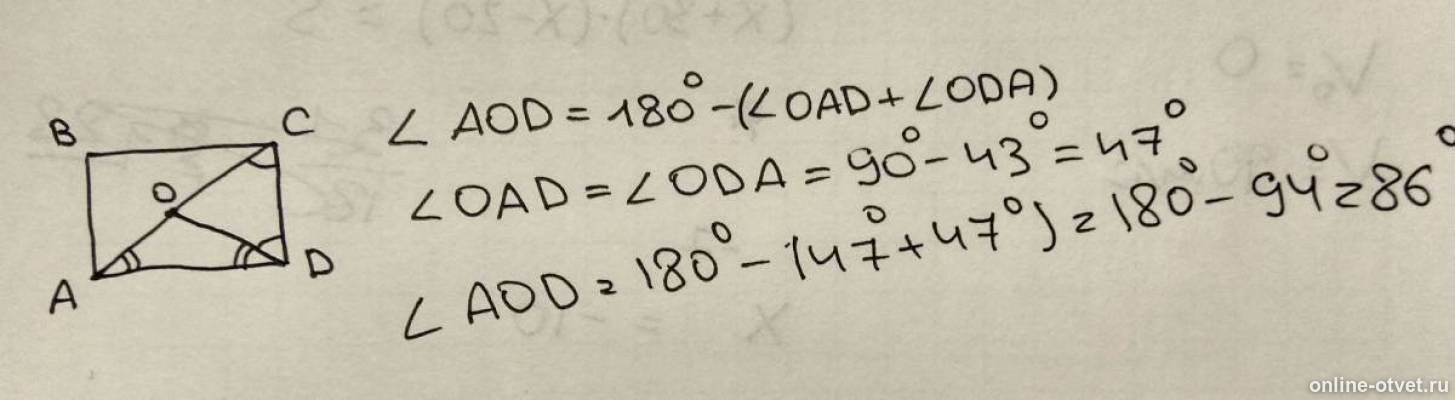 B
C
O
A
D
∠ AOD = 180° - (∠OAD + ∠ODA)
∠OAD = ∠ODA = 90° - 43° = 47°
∠ AOD = 180° - (47° + 47°) = 180° - 94° = 86°
(x+20)·(x-20) = S
V₀ = 0
online-otvet.ru